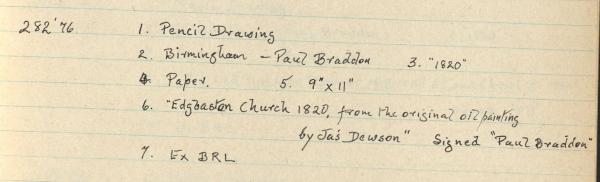 282'76 1. Pencil Drawing
2. Birmingham - Paul Braddon 3. "1820"
4. Paper. 5. 9" x 11"
6. "Edgbaston Church 1820, from the original oil painting
by Jas Dewson" Signed "Paul Braddon"
7. Ex BRL